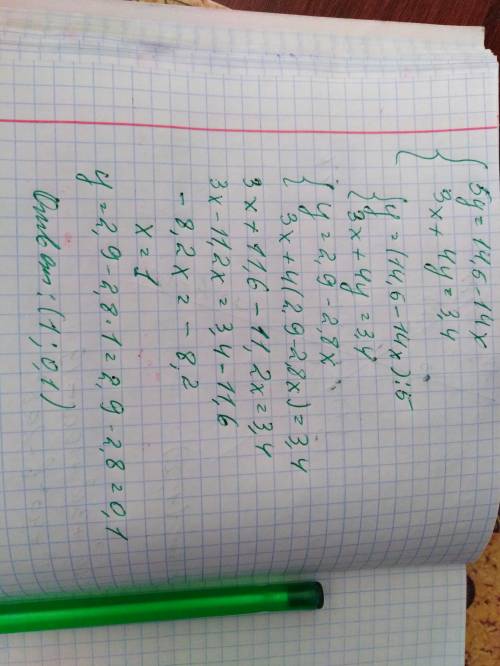 { 5y = 14,6 - 14x
3x + 4y = 3,4
{ y = (14,6 - 14x) : 5
3x + 4y = 3,4
{ y = 2,9 - 2,8x
3x + 4(2,9 - 2,8x) = 3,4
3x + 11,6 - 11,2x = 3,4
3x - 11,2x = 3,4 - 11,6
- 8,2x = - 8,2
x = 1
y = 2,9 - 2,8 · 1 = 2,9 - 2,8 = 0,1
Ответ: (1; 0,1)